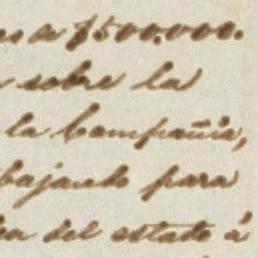 de $500.000.
sobre la
la Compañia,
bajando para
del estado á